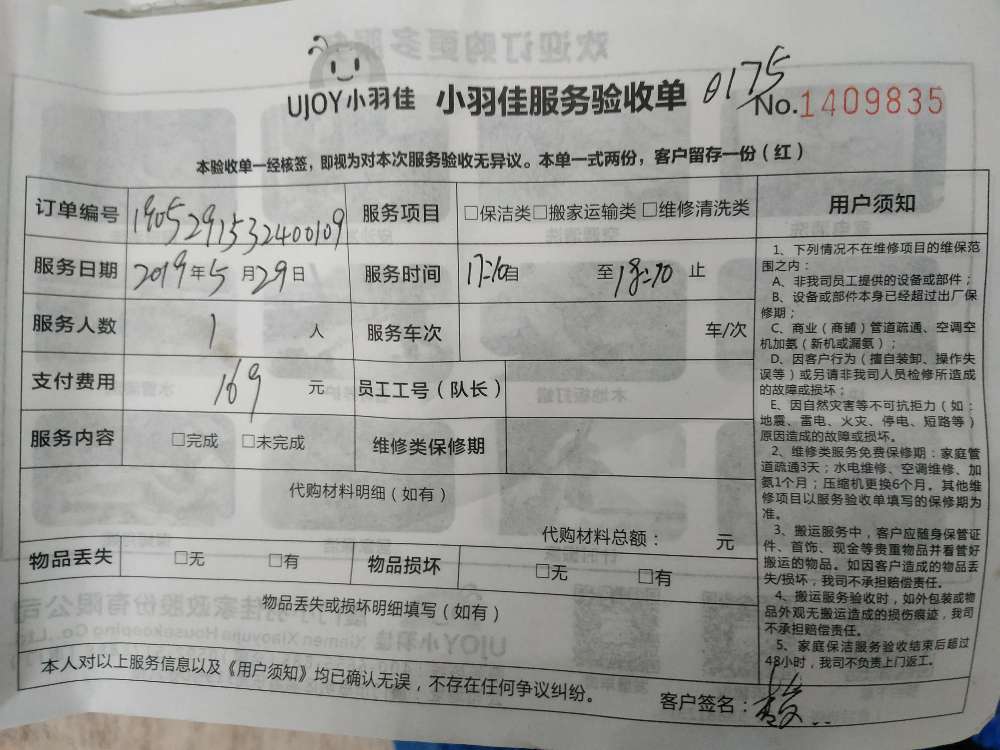 UJOY小羽佳 小羽佳服务验收单 0175
No.1409835
本验收单一经核签，即视为对本次服务验收无异议。本单一式两份，客户留存一份（红）
订单编号 1905291532400109 服务项目 □保洁类□搬家运输类□维修清洗类
服务日期 2019年5月29日 服务时间 17:10自 至18:10止
服务人数 1 人 服务车次 车/次
支付费用 169 元 员工工号（队长）
服务内容 □完成 □未完成 维修类保修期
代购材料明细（如有）
代购材料总额： 元
物品丢失 □无 □有 物品损坏 □无 □有
物品丢失或损坏明细填写（如有）
本人对以上服务信息以及《用户须知》均已确认无误，不存在任何争议纠纷。
客户签名：
用户须知
1、下列情况不在维修项目的维保范
围之内：
A、非我司员工提供的设备或部件；
B、设备或部件本身已经超过出厂保
修期；
C、商业（商铺）管道疏通、空调空
机加氨（新机或漏氨）；
D、因客户行为（擅自装卸、操作失
误等）或另请非我司人员检修所造成
的故障或损坏；
E、因自然灾害等不可抗拒力（如：
地震、雷电、火灾、停电、短路等）
原因造成的故障或损坏。
2、维修类服务免费保修期：家庭管
道疏通3天；水电维修、空调维修、加
氨1个月；压缩机更换6个月。其他维
修项目以服务验收单填写的保修期为
准。
3、搬运服务中，客户应随身保管证
件、首饰、现金等贵重物品并看管好
搬运的物品。如因客户造成的物品丢
失/损坏，我司不承担赔偿责任。
4、搬运服务验收时，如外包装或物
品外观无搬运造成的损伤痕迹，我司
不承担赔偿责任。
5、家庭保洁服务验收结束后超过
48小时，我司不负责上门返工。